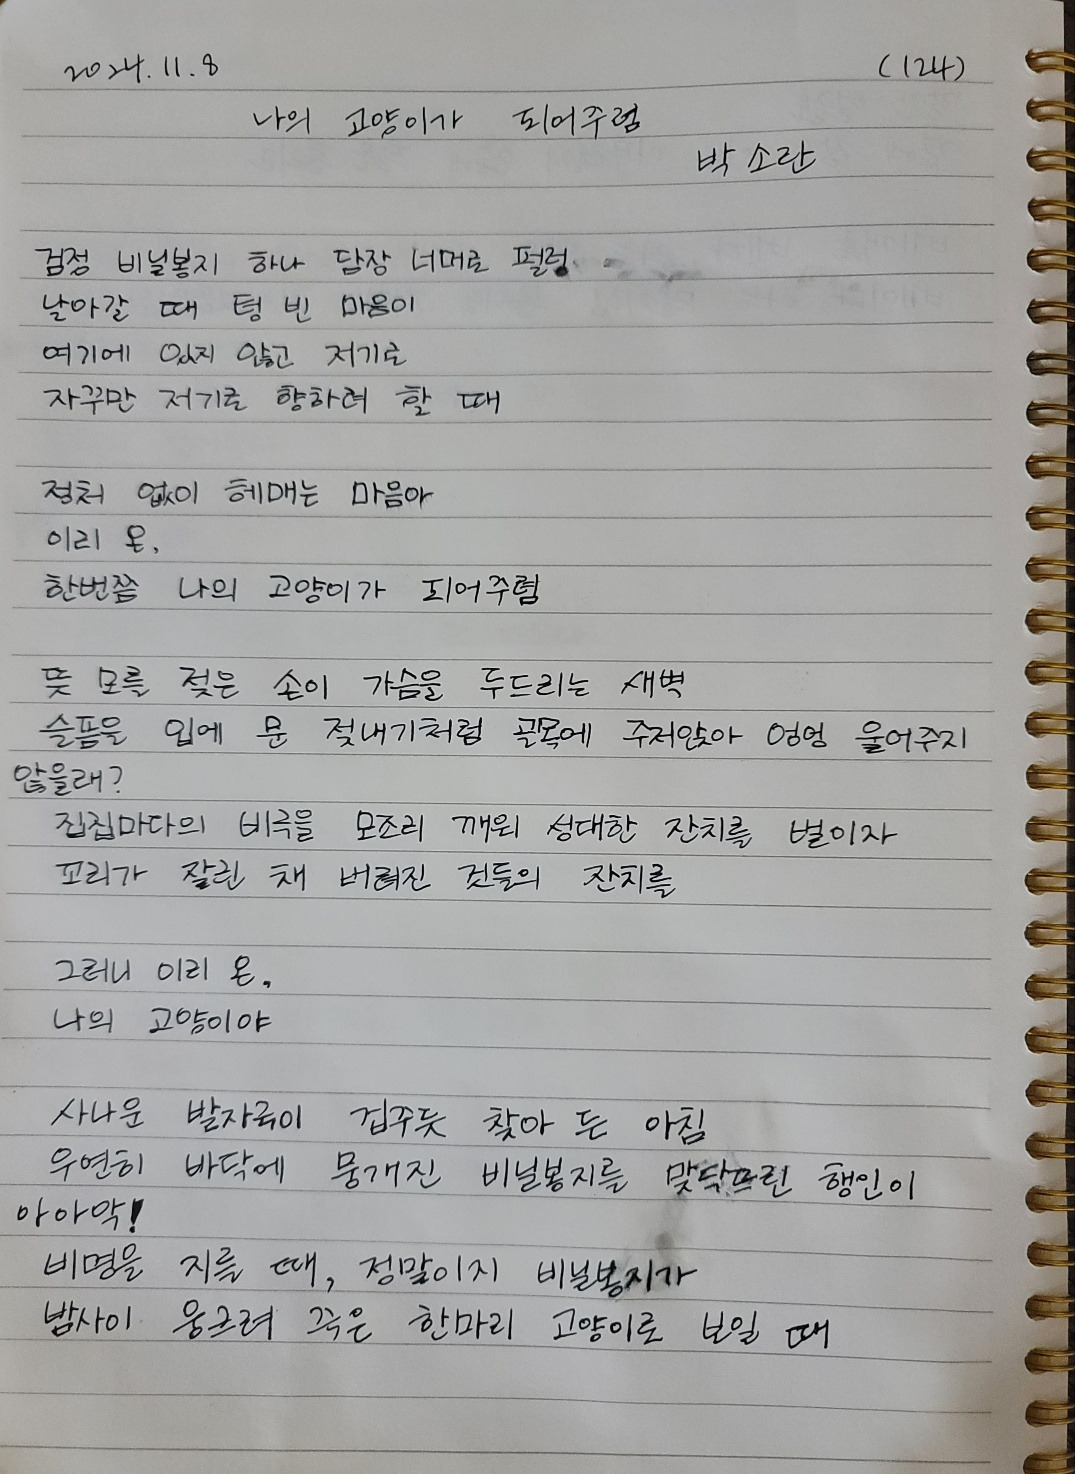 2024.11.8
(124)
나의 고양이가 되어주렴
박소란
검정 비닐봉지 하나 담장 너머로 펄렁
날아갈 때 텅 빈 마음이
여기에 있지 않고 저기로
자꾸만 저기로 향하려 할 때
정처 없이 헤매는 마음아
이리 온,
한번쯤 나의 고양이가 되어주렴
뜻 모를 젖은 손이 가슴을 두드리는 새벽
슬픔을 입에 문 젖내기처럼 골목에 주저앉아 엉엉 울어주지
않을래?
집집마다의 비극을 모조리 깨워 성대한 잔치를 벌이자
꼬리가 잘린 채 버려진 것들의 잔치를
그러니 이리 온,
나의 고양이야
사나운 발자국이 겁주듯 찾아 든 아침
우연히 바닥에 뭉개진 비닐봉지를 맞닥뜨린 행인이
아아악!
비명을 지를 때, 정말이지 비닐봉지가
밤사이 웅크려 죽은 한마리 고양이로 보일 때